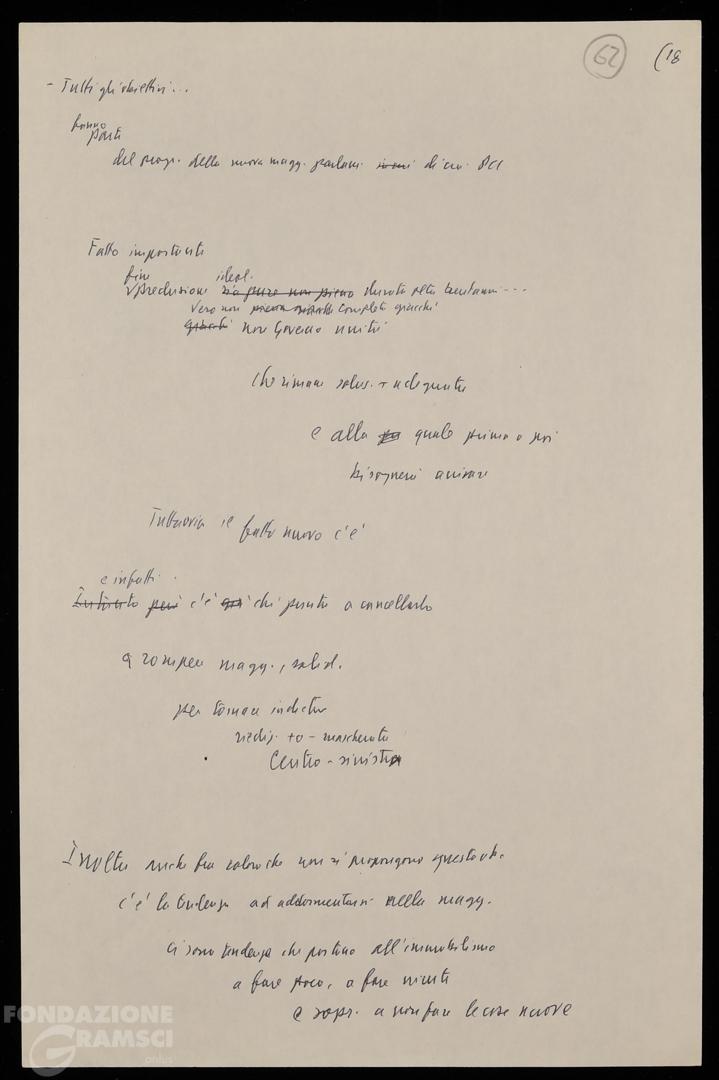 62 (18
- Tutti gli obiettivi...
hanno
parti
del progr. della nuova magg. parlam. di cui PCI
Fatto importante
fine ideol.
preclusione sia pure non piena durata oltre trentanni...
Vero non completi giacchè
giacchè non Governo unità
che rimane soluz. + adeguata
e alla quale prima o poi
bisognerà arrivare
Tuttavia il fatto nuovo c'è
e infatti
però c'è chi punta a cancellarlo
a rompere magg., solid.
per tornare indietro
riediz. + o - mascherata
Centro-sinistra
Inoltre anche fra coloro che non si propongono questo ob.
c'è la tendenza ad addormentarsi nella magg.
ci sono tendenze che portano all'immobilismo
a fare poco, a fare niente
e sopr. a non fare le cose nuove
FONDAZIONE
GRAMSCI
onlus